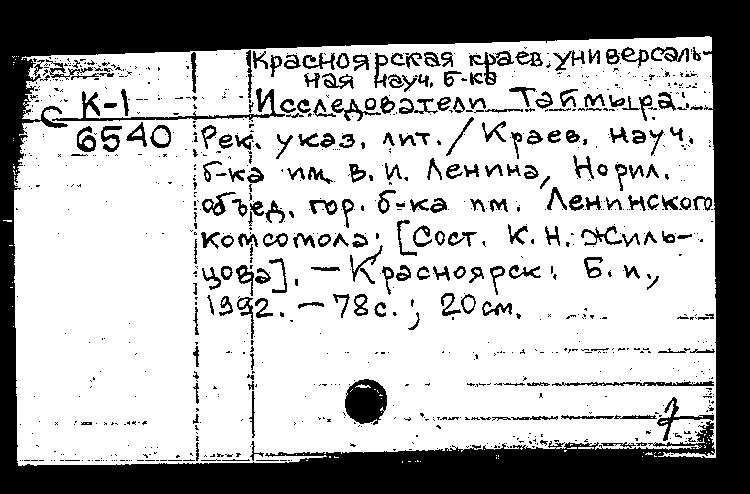 Красноярская краев. универсаль-
ная науч. б-ка
С К-1
6540
Исследователи Таймыра:
Рек. указ. лит. / Краев. науч.
б-ка им. В. И. Ленина, Норил.
объед. гор. б-ка им. Ленинского
комсомола; [Сост. К. Н. Жиль-
цова]. — Красноярск: Б. и.,
1992. — 78 с.; 20 см.